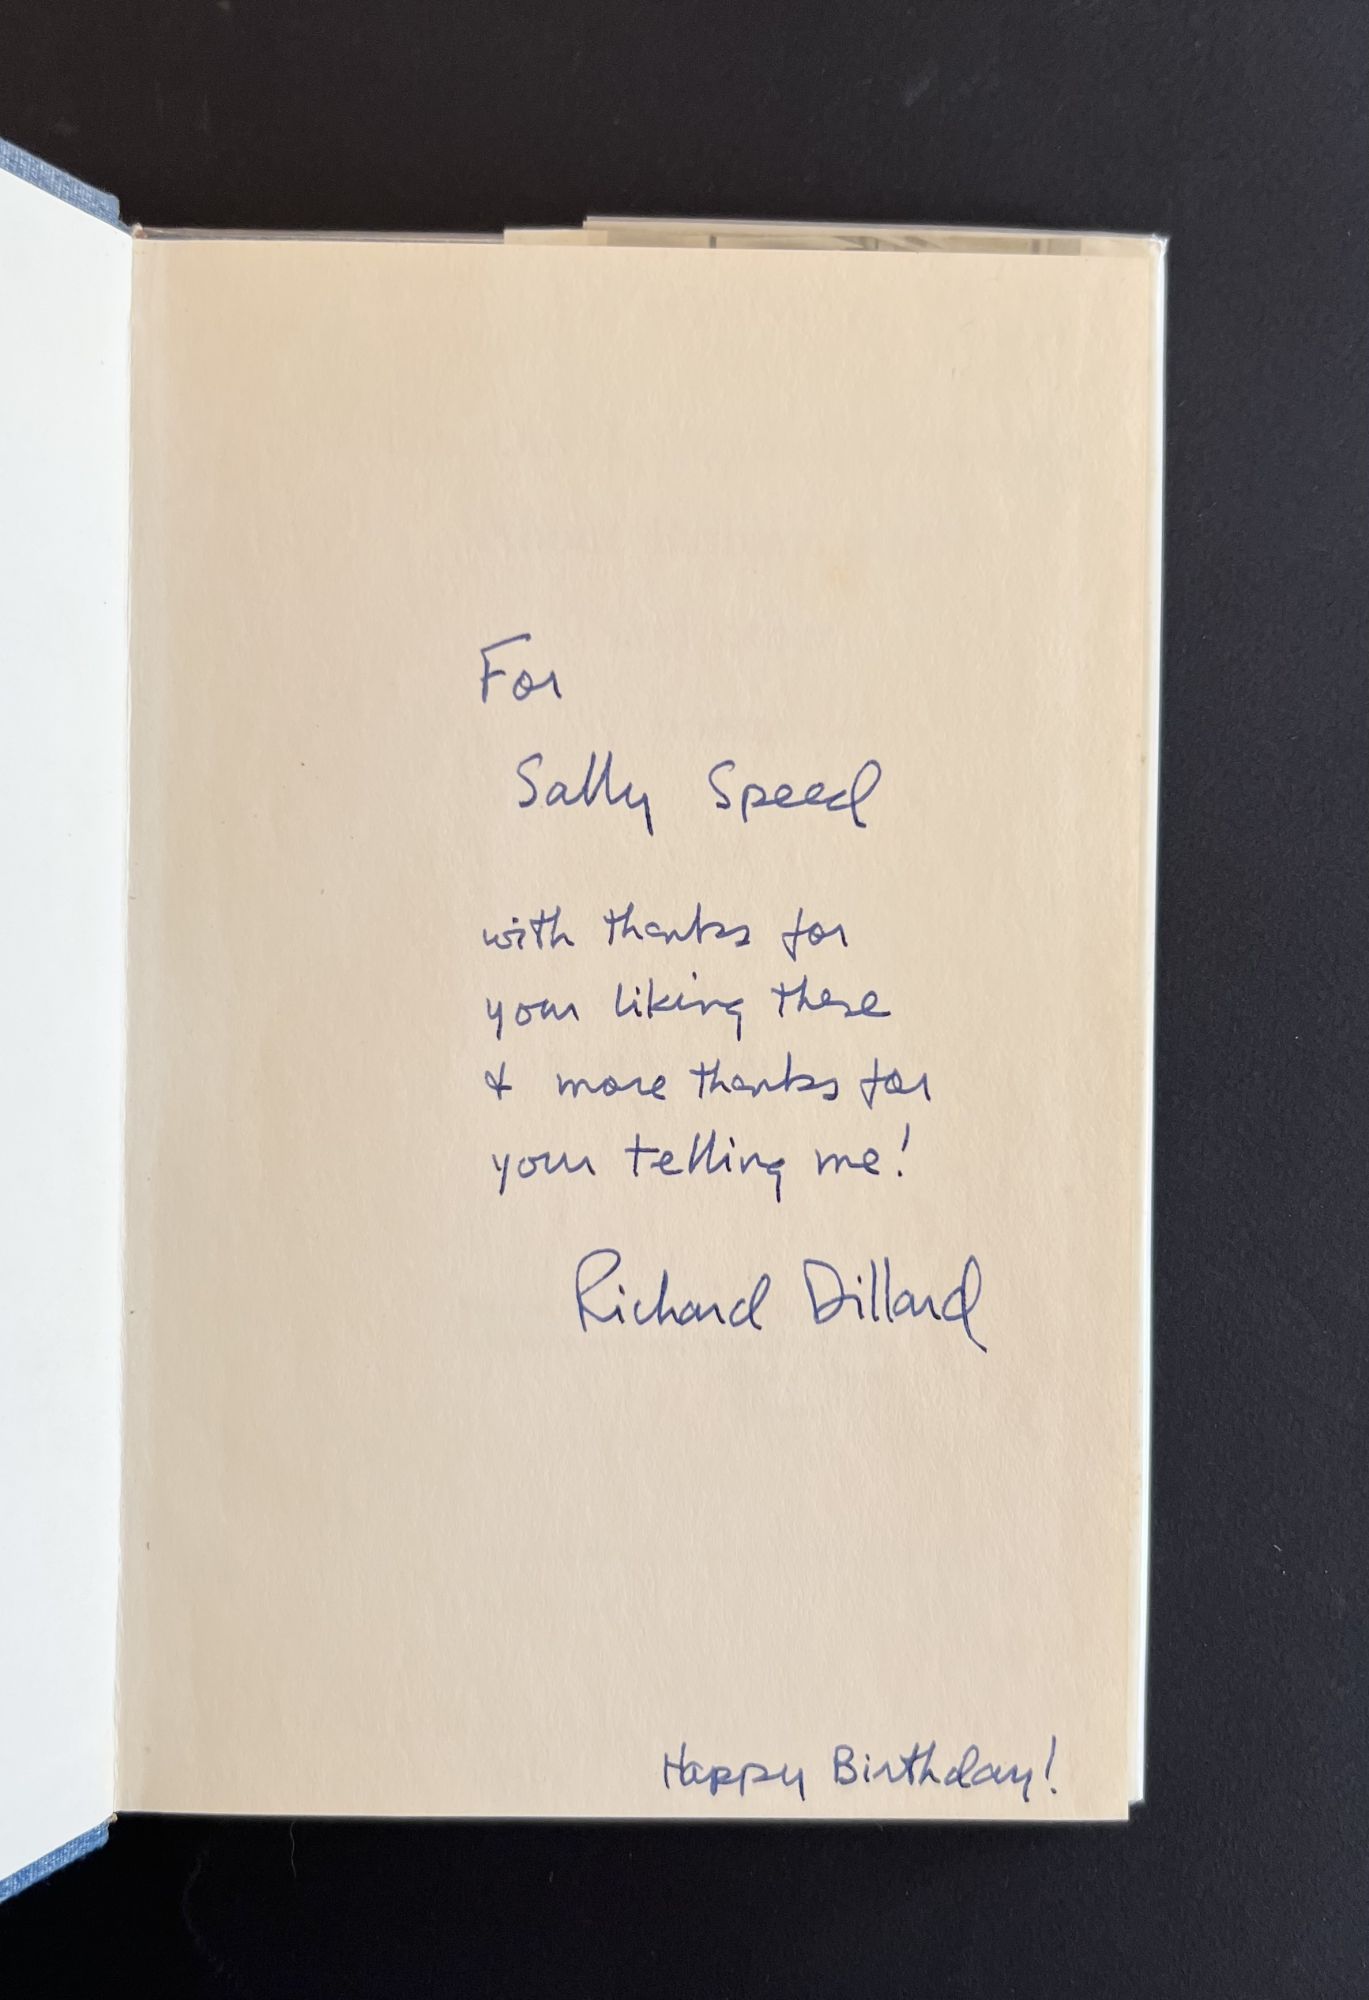 For
Sally Speed
with thanks for
your liking these
& more thanks for
your telling me!
Richard Dillard
Happy Birthday!